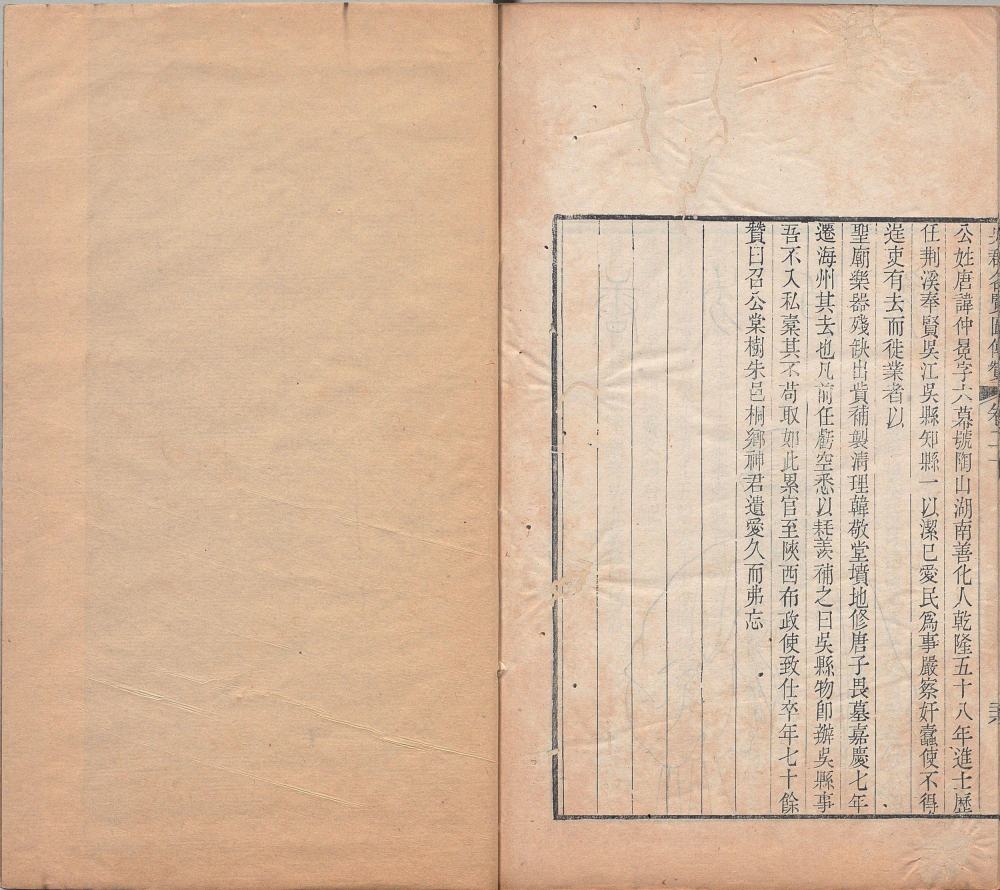 吳郡名賢圖傳贊 卷二十
公姓唐諱仲冕字六幕號陶山湖南善化人乾隆五十八年進士歷
任荆溪奉賢吳江吳縣知縣一以潔已愛民爲事嚴察奸蠧使不得
逞吏有去而徙業者以
聖廟樂器殘缺出貲補製清理韓敬堂墳地修唐子畏墓嘉慶七年
遷海州其去也凡前任虧空悉以耗羨補之曰吳縣物卽辦吳縣事
吾不入私橐其不苟取如此累官至陝西布政使致仕卒年七十餘
贊曰召公棠樹朱邑桐鄉神君遺愛久而弗忘